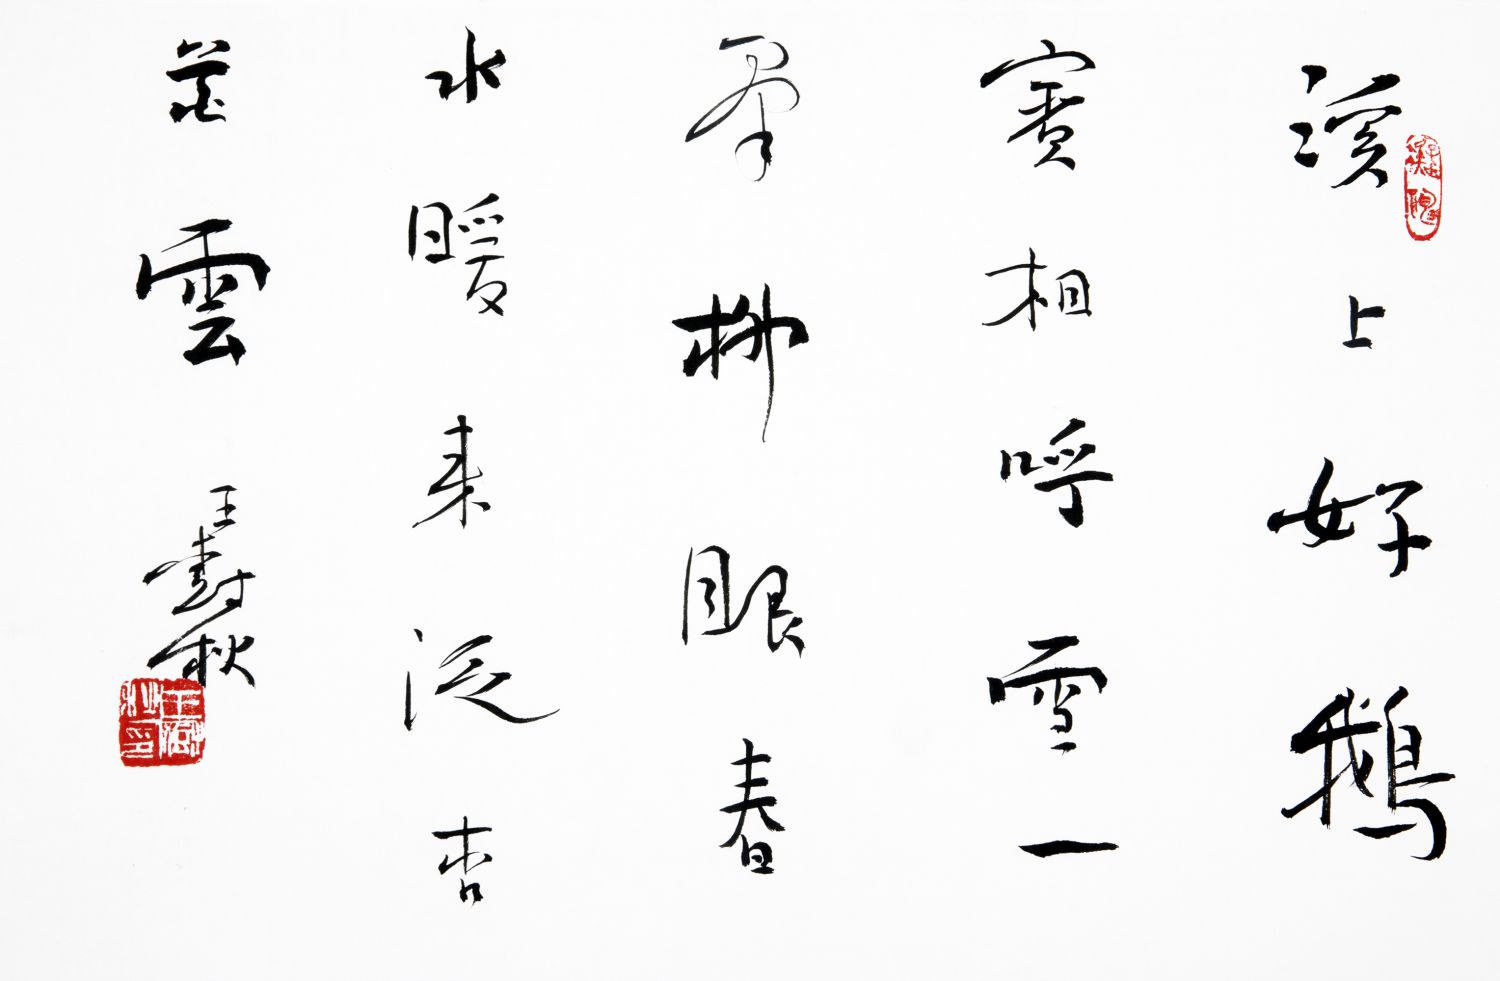 溪上好鵝
賓相呼雪一
羣柳眼春
水暖来泛杏
花雲
王 秋